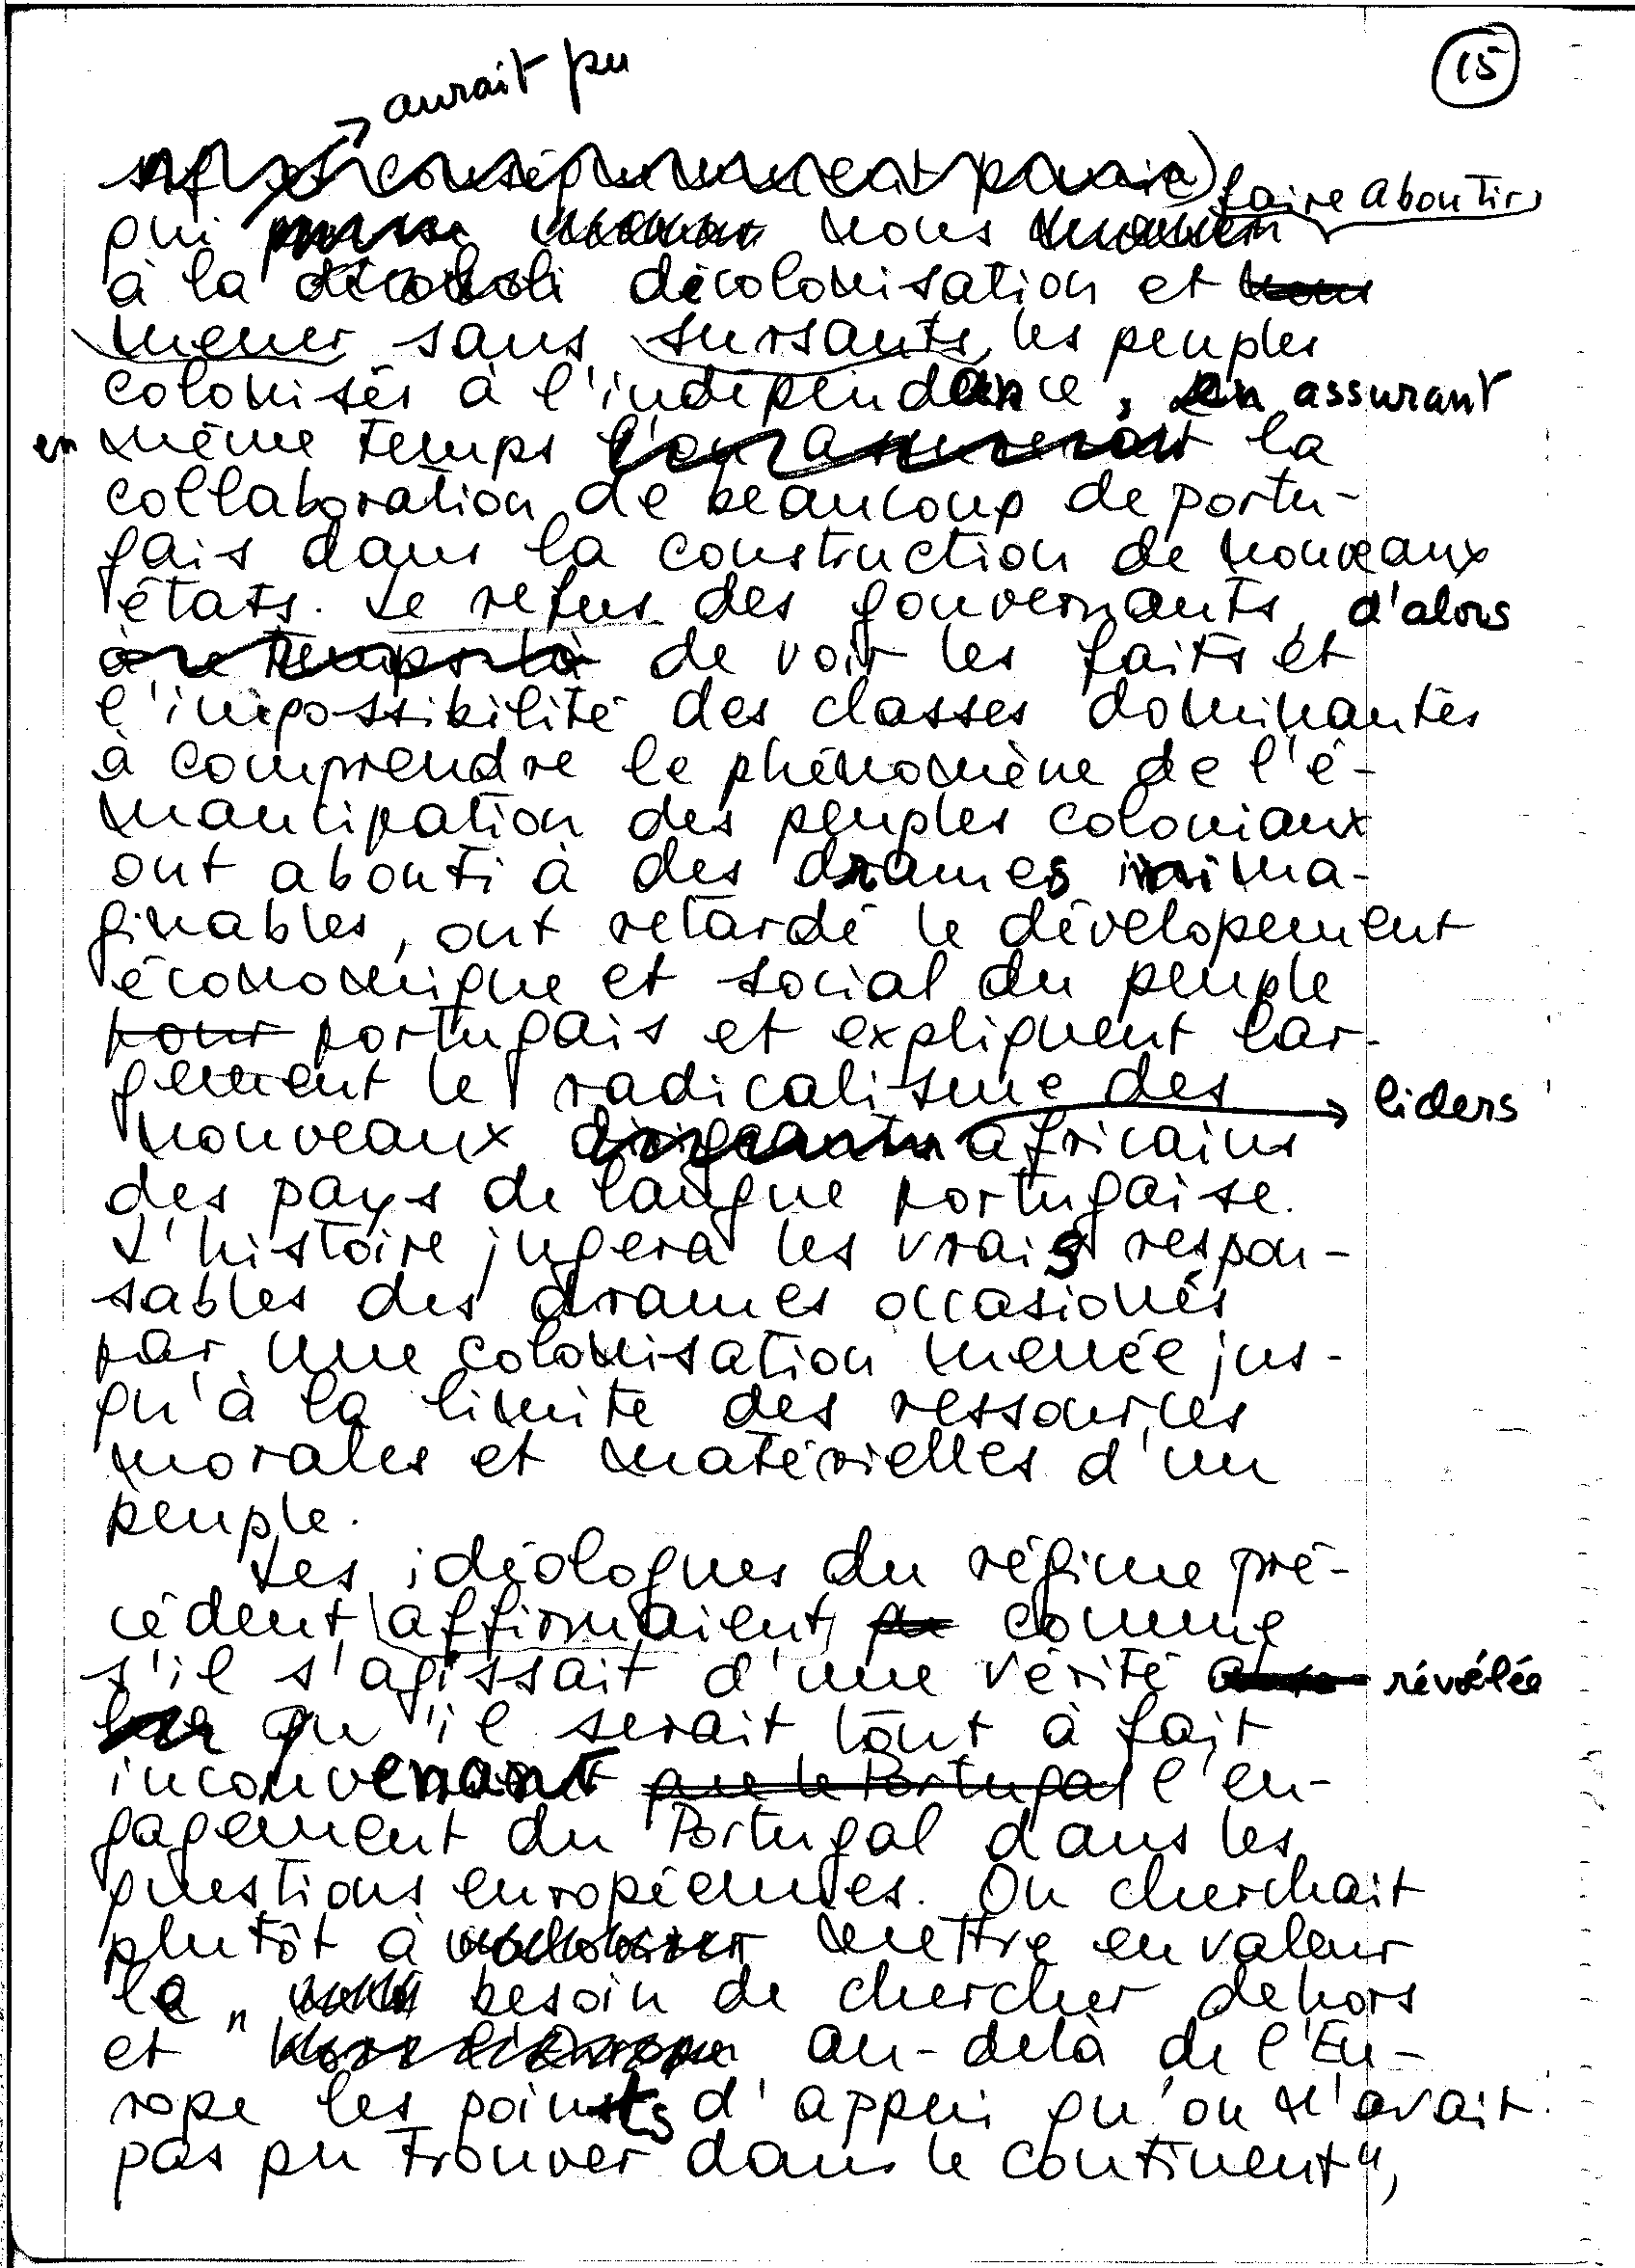 15
aurait pu
faire aboutir
qui nous
à la décolonisation et
mener sans sursauts, les peuples
colonisés à l'indépendance, en assurant
en même temps la
collaboration de beaucoup de portu-
gais dans la construction de nouveaux
états. Le refus des gouvernants d'alors
de voir les faits et
l'impossibilité des classes dominantes
à comprendre le phénomène de l'é-
mancipation des peuples coloniaux
ont abouti à des drames inima-
ginables, ont retardé le dévelopement
économique et social du peuple
pour portugais et expliquent lar-
gement le radicalisme des liders
nouveaux dirigeants africains
des pays de langue portugaise.
L'histoire jugera les vrais respon-
sables des drames occasionés
par une colonisation menée jus-
qu'à la limite des ressources
morales et matérielles d'un
peuple.
Les idéologues du régime pré-
cédent affirmaient comme
s'il s'agissait d'une vérité révélée
qu'il serait tout à fait
inconvenant que le Portugal l'en-
gagement du Portugal dans les
questions européennes. On cherchait
plutôt à mettre en valeur
le "besoin de chercher dehors
et au-delà de l'Eu-
rope les points d'appui qu'on n'avait
pas pu trouver dans le continent",